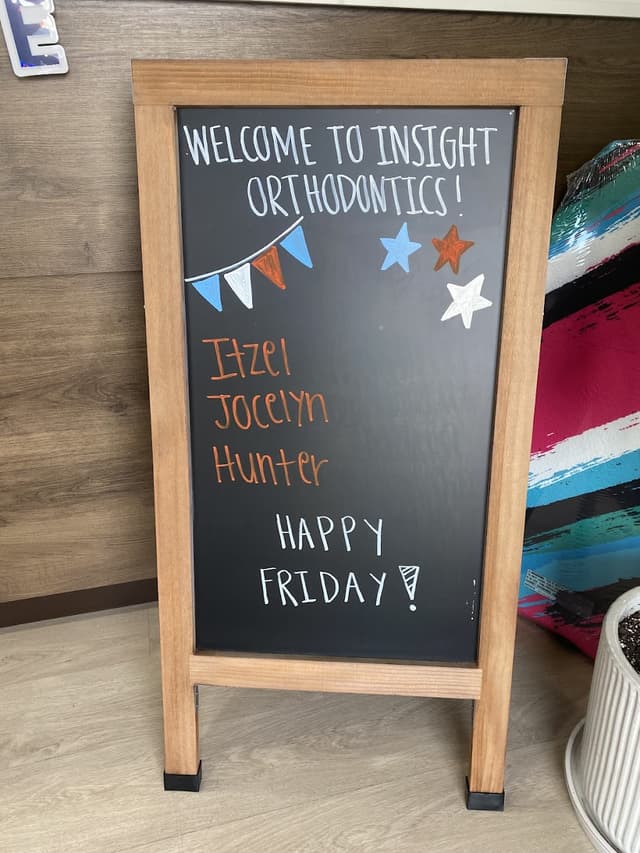 E
WELCOME TO INSIGHT
ORTHODONTICS!
Itzel
Jocelyn
Hunter
HAPPY
FRIDAY!